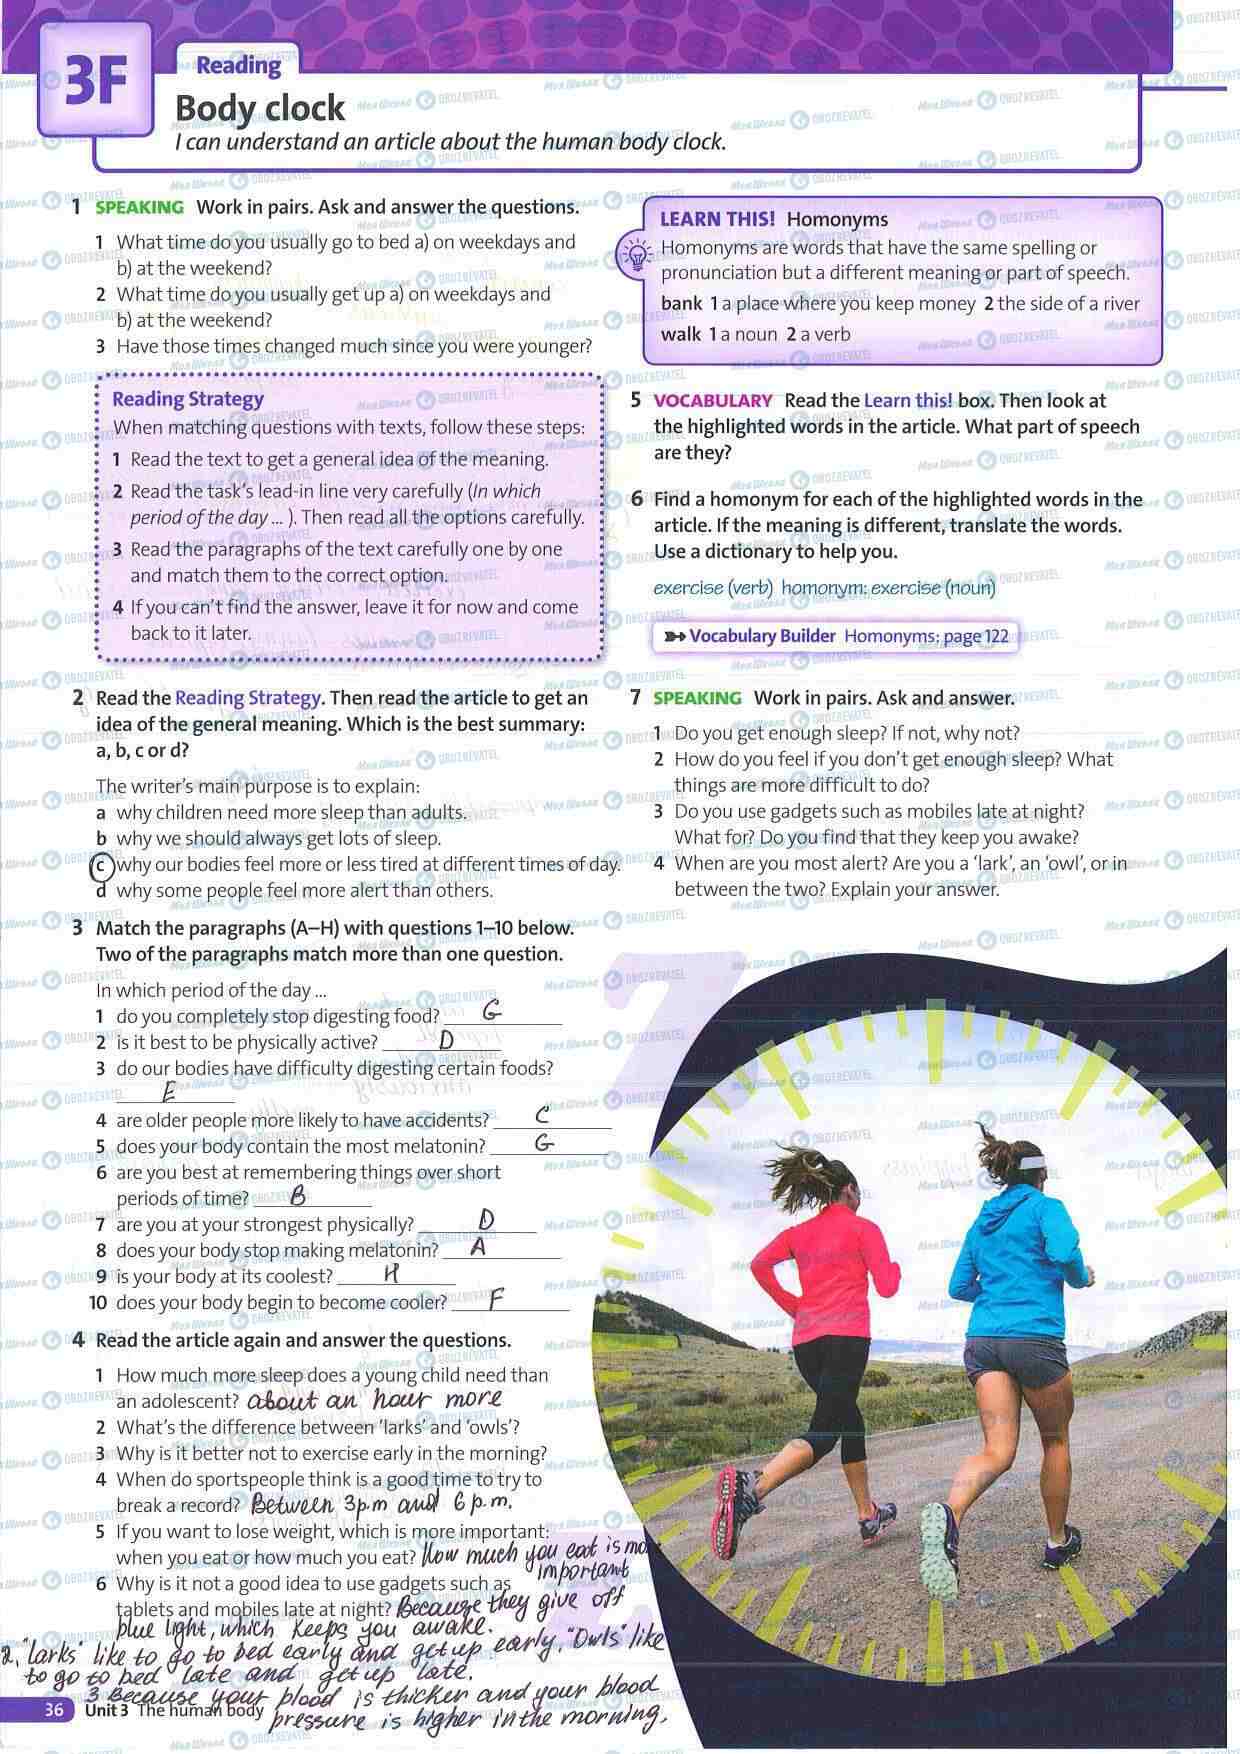 3F
Reading
Body clock
I can understand an article about the human body clock.
1 SPEAKING Work in pairs. Ask and answer the questions.
1 What time do you usually go to bed a) on weekdays and
b) at the weekend?
2 What time do you usually get up a) on weekdays and
b) at the weekend?
3 Have those times changed much since you were younger?
Reading Strategy
When matching questions with texts, follow these steps:
1 Read the text to get a general idea of the meaning.
2 Read the task's lead-in line very carefully (In which
period of the day ... ). Then read all the options carefully.
3 Read the paragraphs of the text carefully one by one
and match them to the correct option.
4 If you can't find the answer, leave it for now and come
back to it later.
2 Read the Reading Strategy. Then read the article to get an
idea of the general meaning. Which is the best summary:
a, b, c or d?
The writer's main purpose is to explain:
a why children need more sleep than adults.
b why we should always get lots of sleep.
c why our bodies feel more or less tired at different times of day.
d why some people feel more alert than others.
3 Match the paragraphs (A–H) with questions 1–10 below.
Two of the paragraphs match more than one question.
In which period of the day ...
1 do you completely stop digesting food? G
2 is it best to be physically active? D
3 do our bodies have difficulty digesting certain foods?
E
4 are older people more likely to have accidents? C
5 does your body contain the most melatonin? G
6 are you best at remembering things over short
periods of time? B
7 are you at your strongest physically? D
8 does your body stop making melatonin? A
9 is your body at its coolest? H
10 does your body begin to become cooler? F
4 Read the article again and answer the questions.
1 How much more sleep does a young child need than
an adolescent? about an hour more
2 What's the difference between 'larks' and 'owls'?
3 Why is it better not to exercise early in the morning?
4 When do sportspeople think is a good time to try to
break a record? Between 3p.m and 6 p.m.
5 If you want to lose weight, which is more important:
when you eat or how much you eat? How much you eat is more
important
6 Why is it not a good idea to use gadgets such as
tablets and mobiles late at night? Because they give off
blue light, which keeps you awake.
2. "larks" like to go to bed early and get up early, "Owls" like
to go to bed late and get up late.
3 Because your blood is thicker and your blood
pressure is higher in the morning.
36 Unit 3 The human body
LEARN THIS! Homonyms
Homonyms are words that have the same spelling or
pronunciation but a different meaning or part of speech.
bank 1 a place where you keep money 2 the side of a river
walk 1 a noun 2 a verb
5 VOCABULARY Read the Learn this! box. Then look at
the highlighted words in the article. What part of speech
are they?
6 Find a homonym for each of the highlighted words in the
article. If the meaning is different, translate the words.
Use a dictionary to help you.
exercise (verb) homonym: exercise (noun)
Vocabulary Builder Homonyms: page 122
7 SPEAKING Work in pairs. Ask and answer.
1 Do you get enough sleep? If not, why not?
2 How do you feel if you don't get enough sleep? What
things are more difficult to do?
3 Do you use gadgets such as mobiles late at night?
What for? Do you find that they keep you awake?
4 When are you most alert? Are you a 'lark', an 'owl', or in
between the two? Explain your answer.